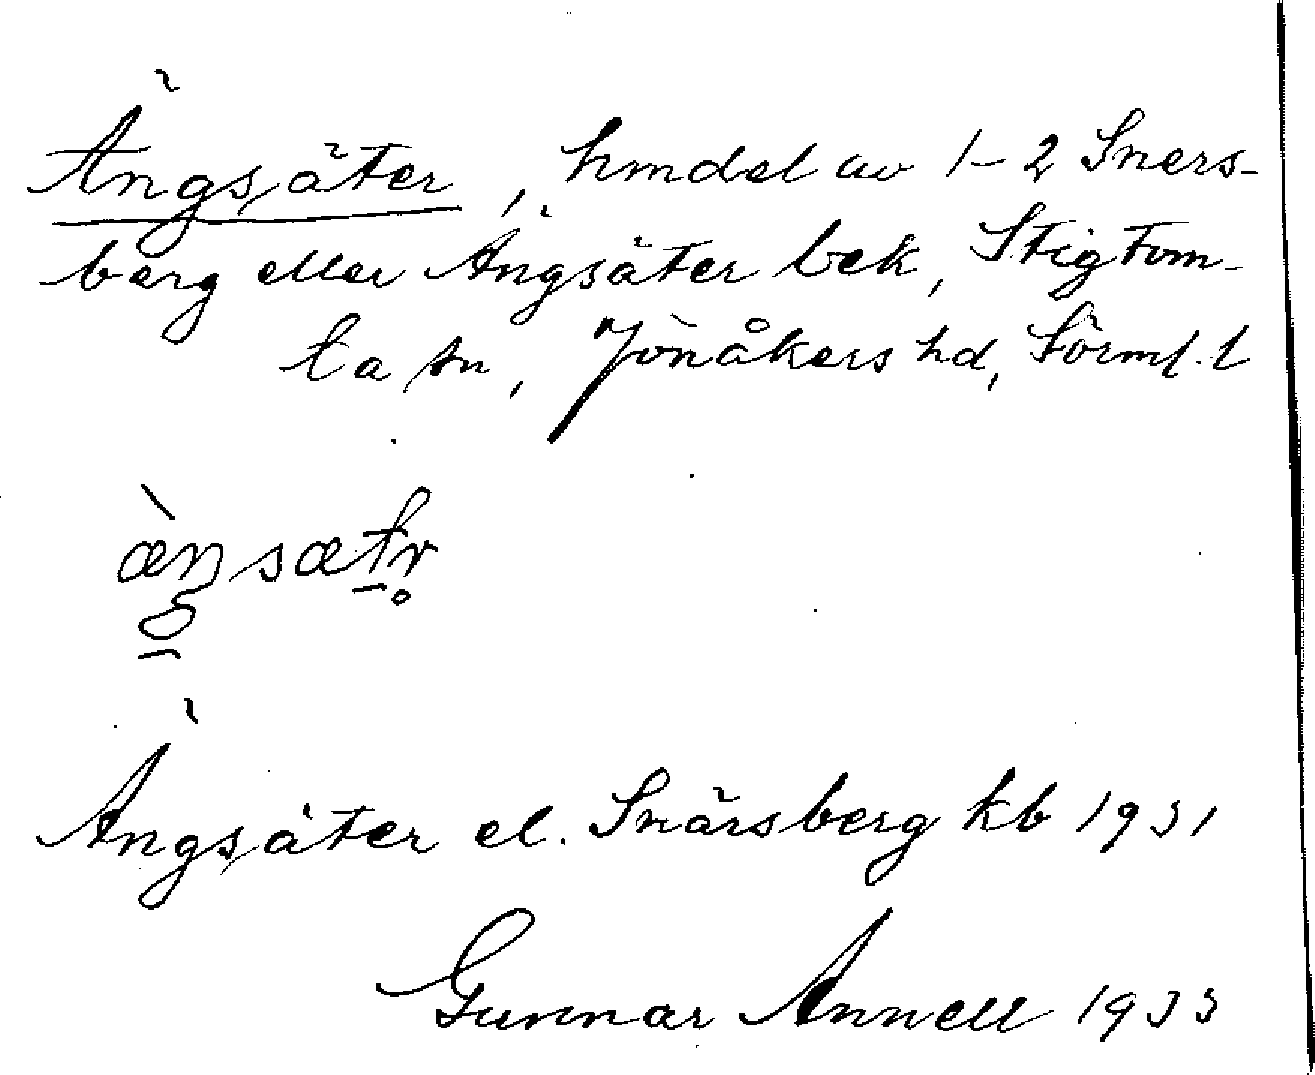 Ängsäter, hmdel av 1-2 Sners-
berg eller Ängsäter bek, Stigtom-
ta sn, Jönåkers hd, Sörml. l
æ̀ŋsætr̥
Ängsäter el. Snärsberg kb 1931
Gunnar Annell 1933